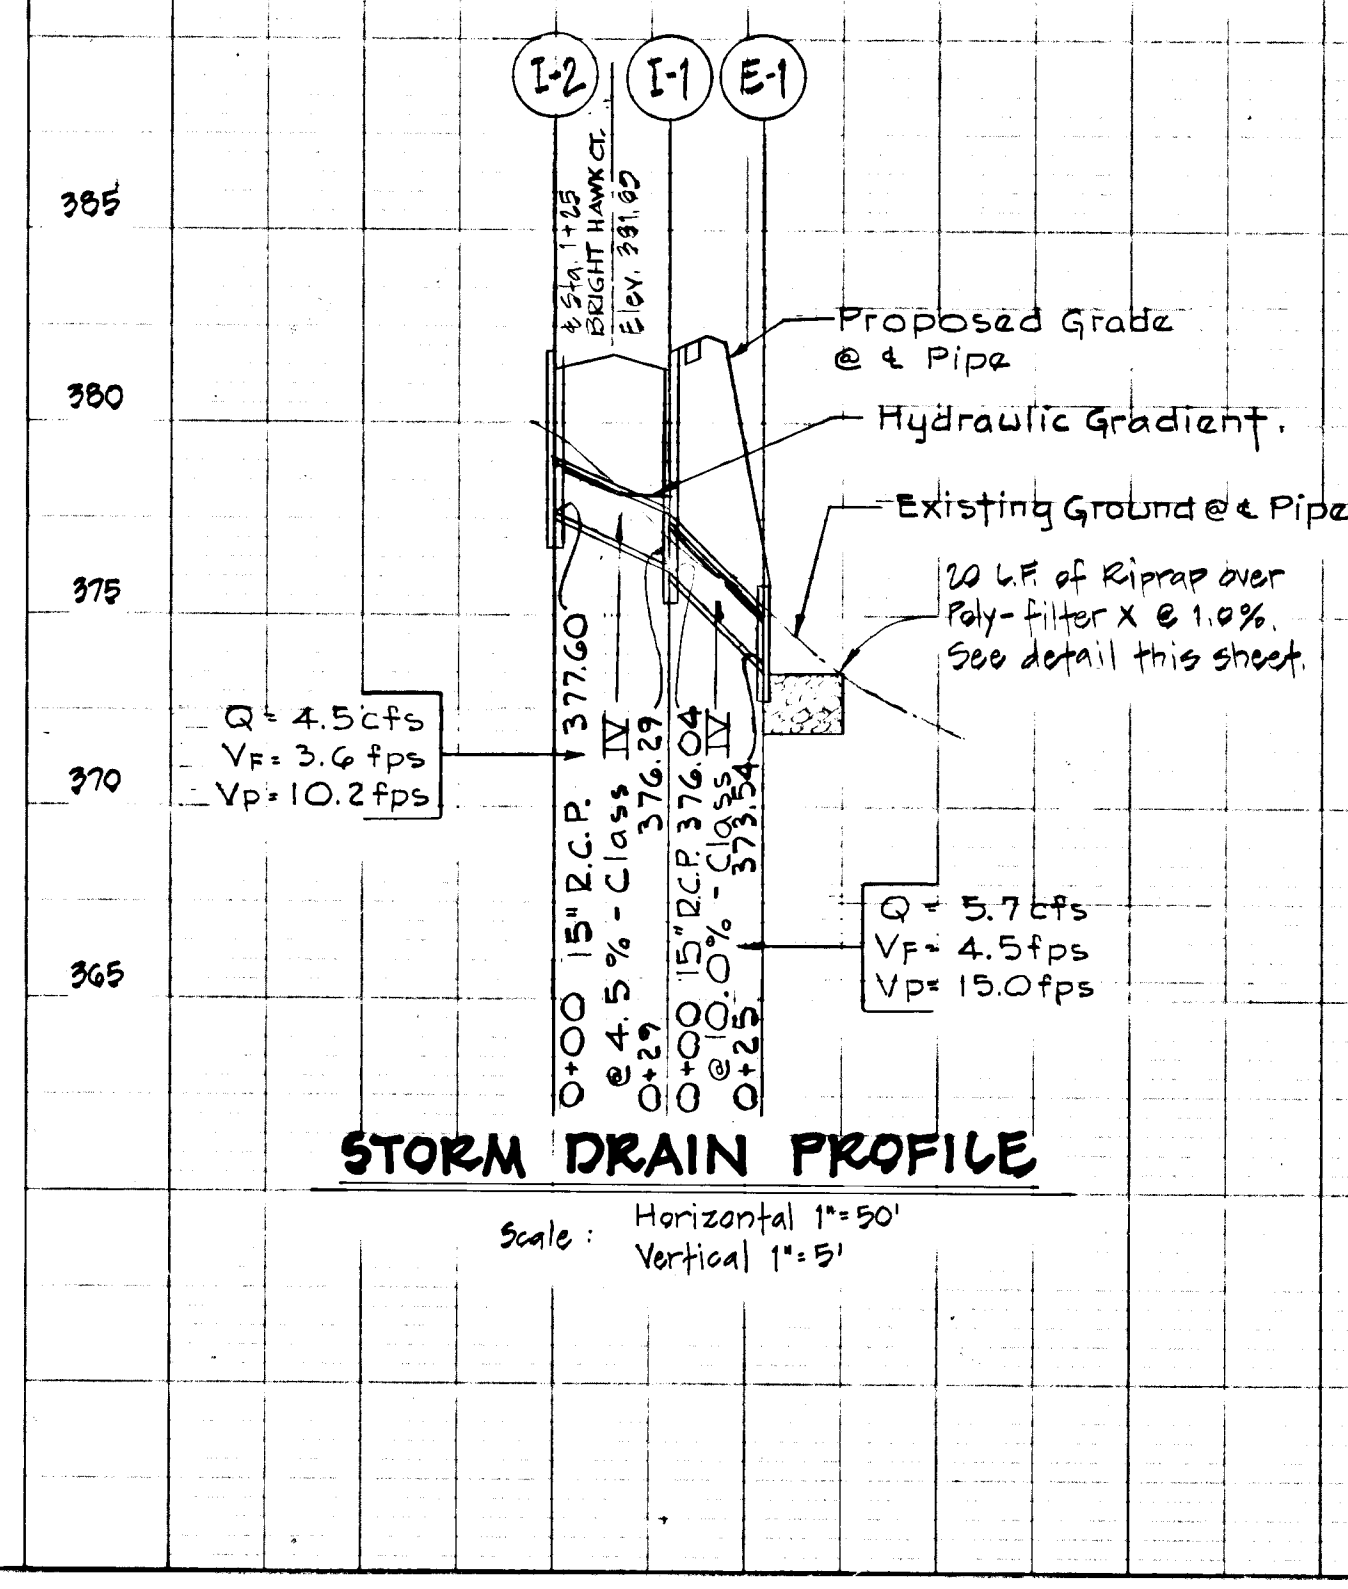 I-2
I-1
E-1
℄ Sta. 1+25
BRIGHT HAWK CT.
Elev. 381.65
385
380
375
370
365
Proposed Grade
@ ℄ Pipe
Hydraulic Gradient.
Existing Ground @ ℄ Pipe
20 L.F. of Riprap over
Poly-filter X @ 1.0%.
See detail this sheet.
Q = 4.5 cfs
VF = 3.6 fps
Vp = 10.2 fps
Q = 5.7 cfs
VF = 4.5 fps
Vp = 15.0 fps
0+00 15" R.C.P. 377.60
@ 4.5% - Class IV
0+29 376.29
0+00 15" R.C.P. 376.04
@ 10.0% - Class IV
0+25 373.54
STORM DRAIN PROFILE
Scale : Horizontal 1"=50'
Vertical 1"=5'